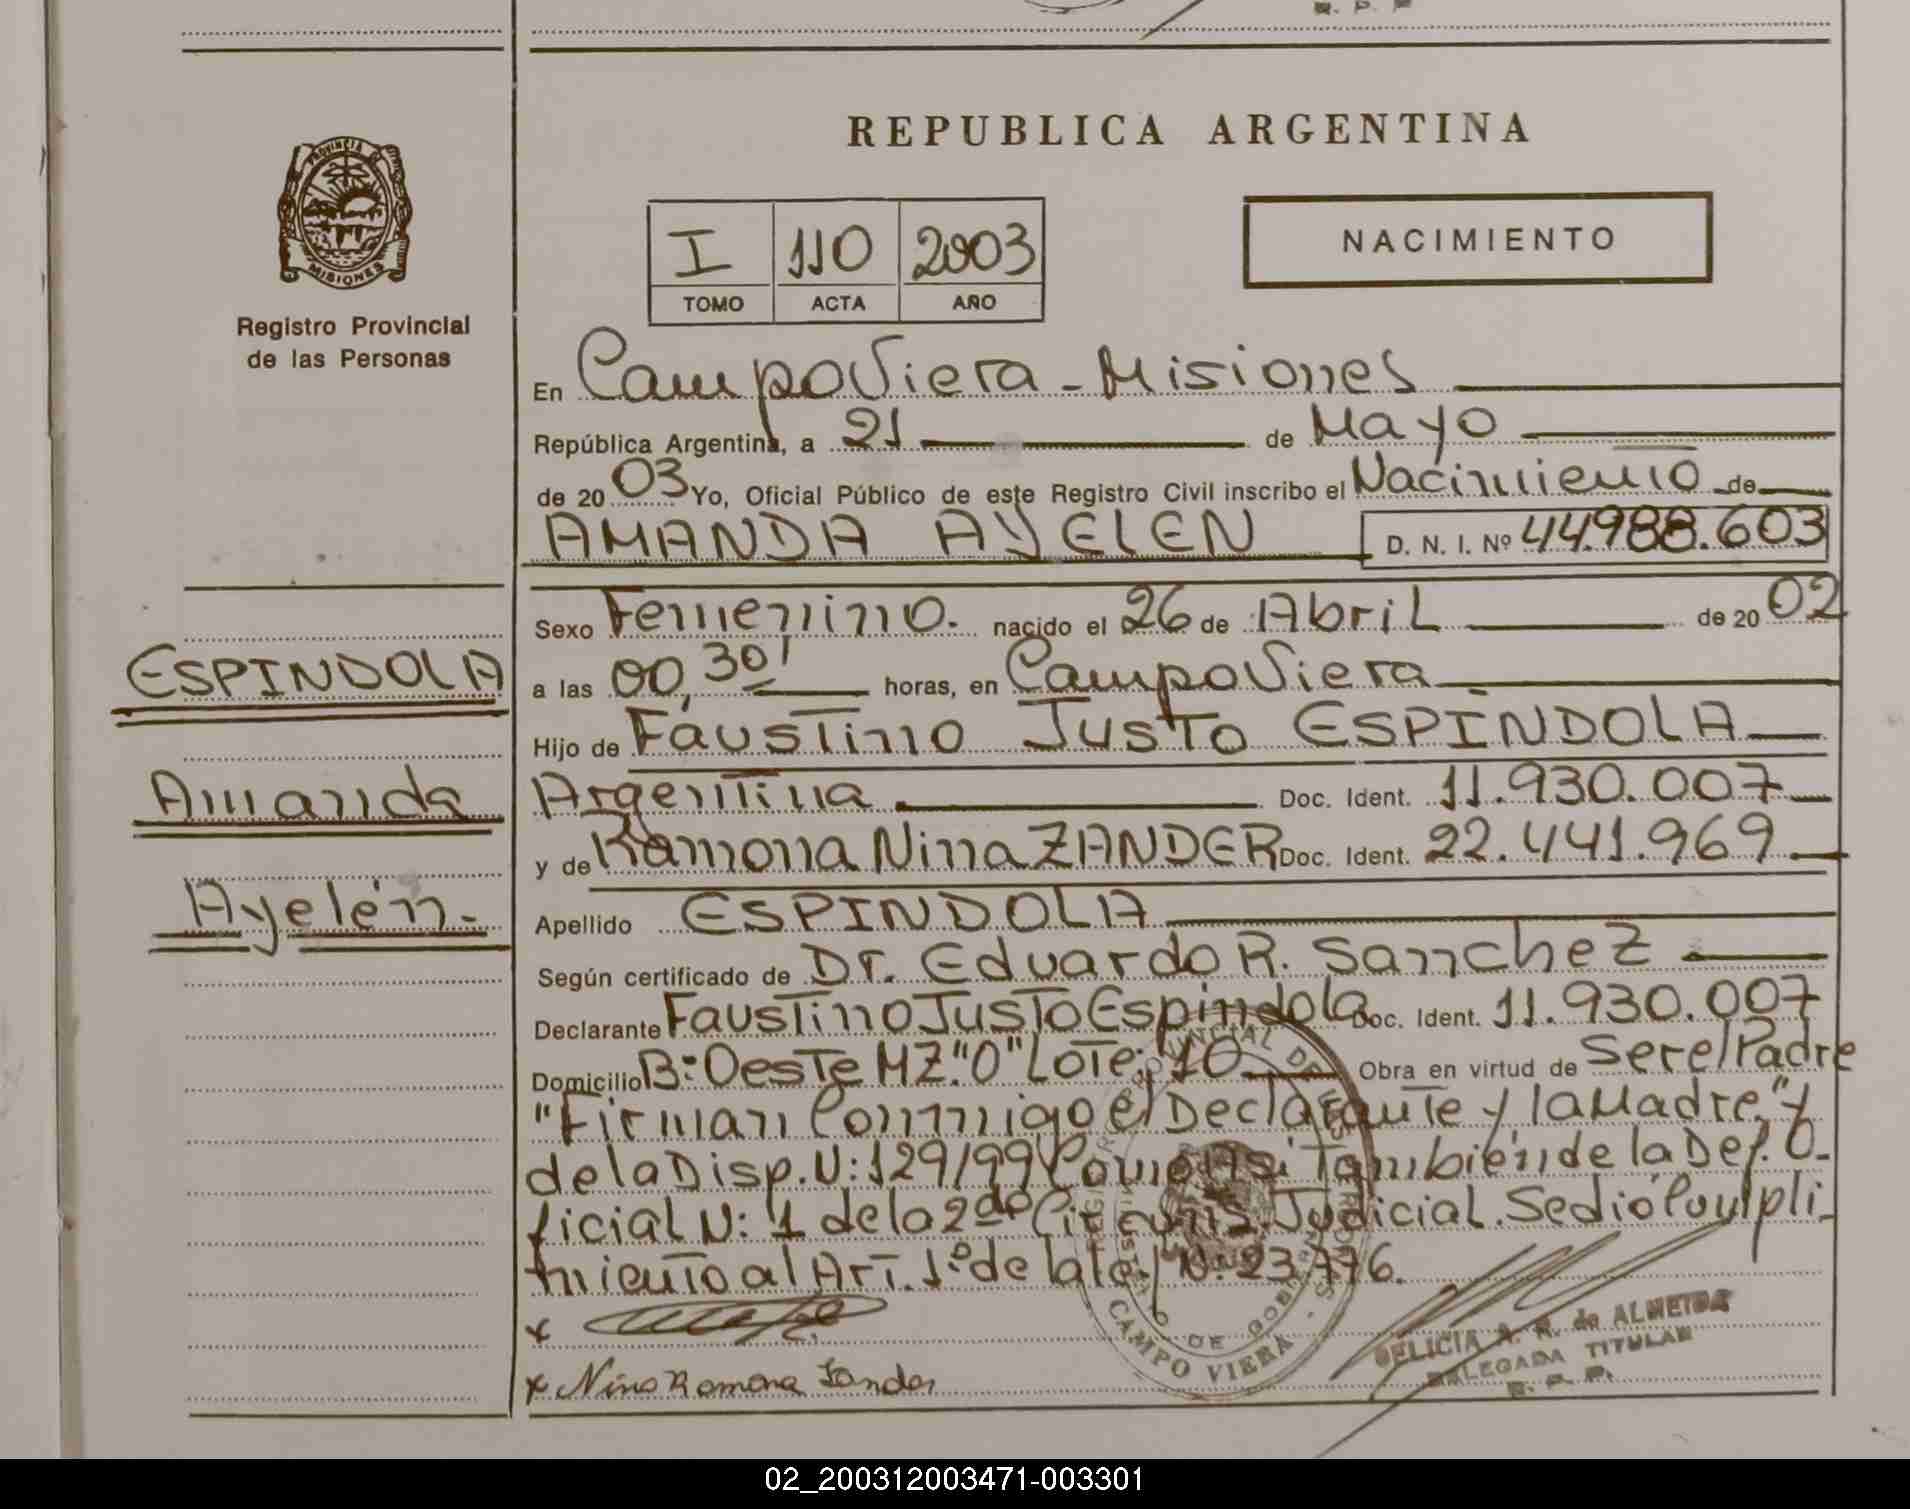 R. P. P.
REPUBLICA ARGENTINA
PROVINCIA DE MISIONES
Registro Provincial
de las Personas
I 110 2003
TOMO ACTA AÑO
NACIMIENTO
En Campo Viera - Misiones
República Argentina, a 21 de Mayo
de 2003 Yo, Oficial Público de este Registro Civil inscribo el Nacimiento de
AMANDA AYELEN D. N. I. Nº 44.988.603
Sexo Femenino. nacido el 26 de Abril de 2002
a las 00,30' horas, en Campo Viera
Hijo de Faustino Justo ESPINDOLA
Argentina Doc. Ident. 11.930.007
y de Ramona Nina ZANDER Doc. Ident. 22.441.969
Apellido ESPINDOLA
Según certificado de Dr. Eduardo R. Sanchez
Declarante Faustino Justo Espindola Doc. Ident. 11.930.007
Domicilio B: Oeste MZ. "O" Lote: 10 Obra en virtud de Ser el Padre
"Firman Conmigo el Declarante y la Madre," y
de la Disp. N: 129/99 Como Asi También de la Def. O-
ficial N: 1 de la 2da Circuns. Judicial. Se dió Cumpli-
miento al Art. 1º de la ley N: 23.776.
x
x Nina Ramona Zander
ESPINDOLA
Amanda
Ayelén.
CAMPO VIERA
FELICIA A. R. de ALMEIDA
DELEGADA TITULAR
R. P. P.
02_200312003471-003301